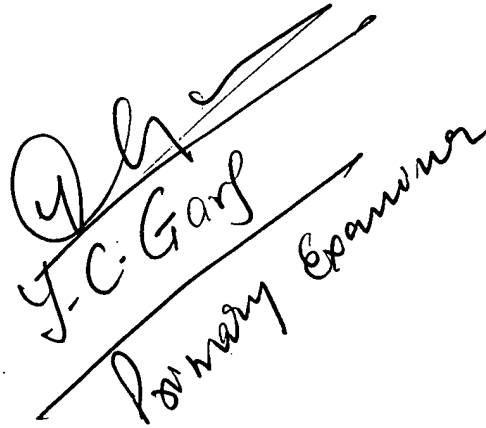 Y.C. Garg
Primary Examiner